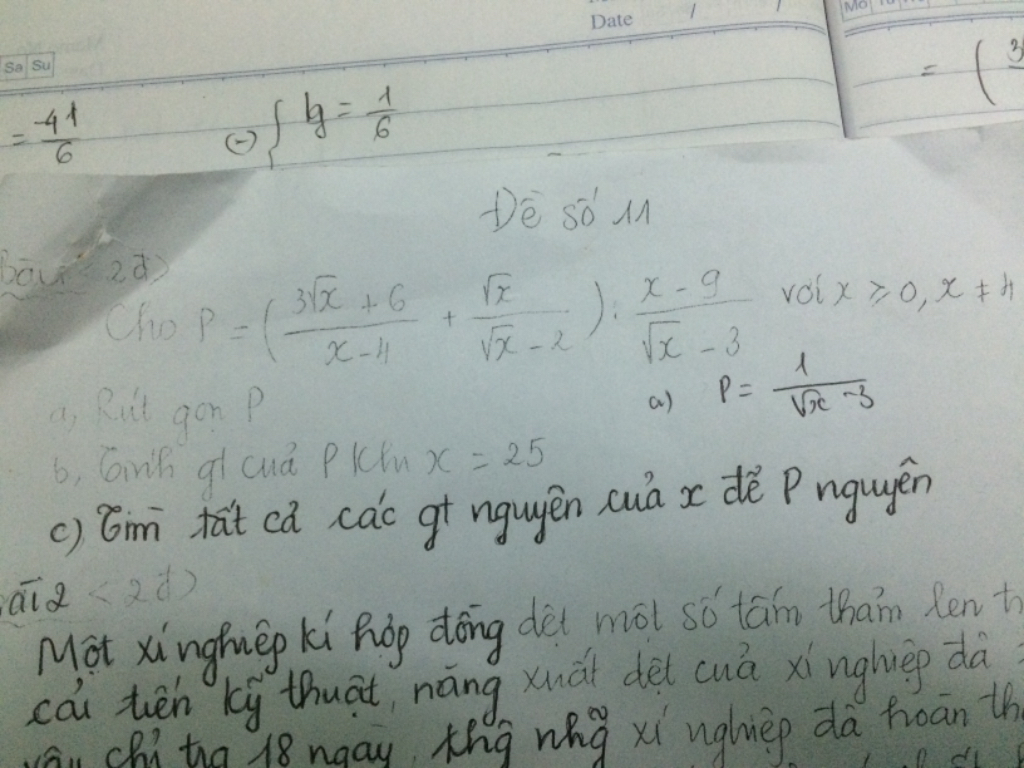 Date / /
Mo Tu
Sa Su
= -41/6
(-) { y = 1/6
= ( 3
Đề số 11
Bài 1 < 2đ>
Cho P = ( (3√x + 6)/(x - 4) + √x/(√x - 2) ) : (x - 9)/(√x - 3) với x ≥ 0, x ≠ 4
a, Rút gọn P
a) P = 1/(√x - 3)
b, Tính gt của P khi x = 25
c) Tìm tất cả các gt nguyên của x để P nguyên
ài 2 < 2đ>
Một xí nghiệp kí hợp đồng dệt một số tấm thảm len t
cải tiến kỹ thuật, năng xuất dệt của xí nghiệp đã
vậy chỉ trg 18 ngày, khg nhg xí nghiệp đã hoàn th